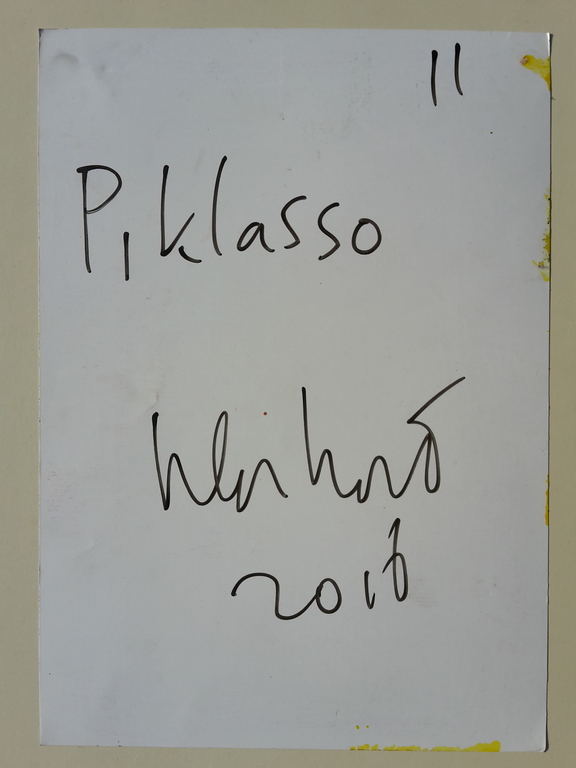 11
Piklasso
2016